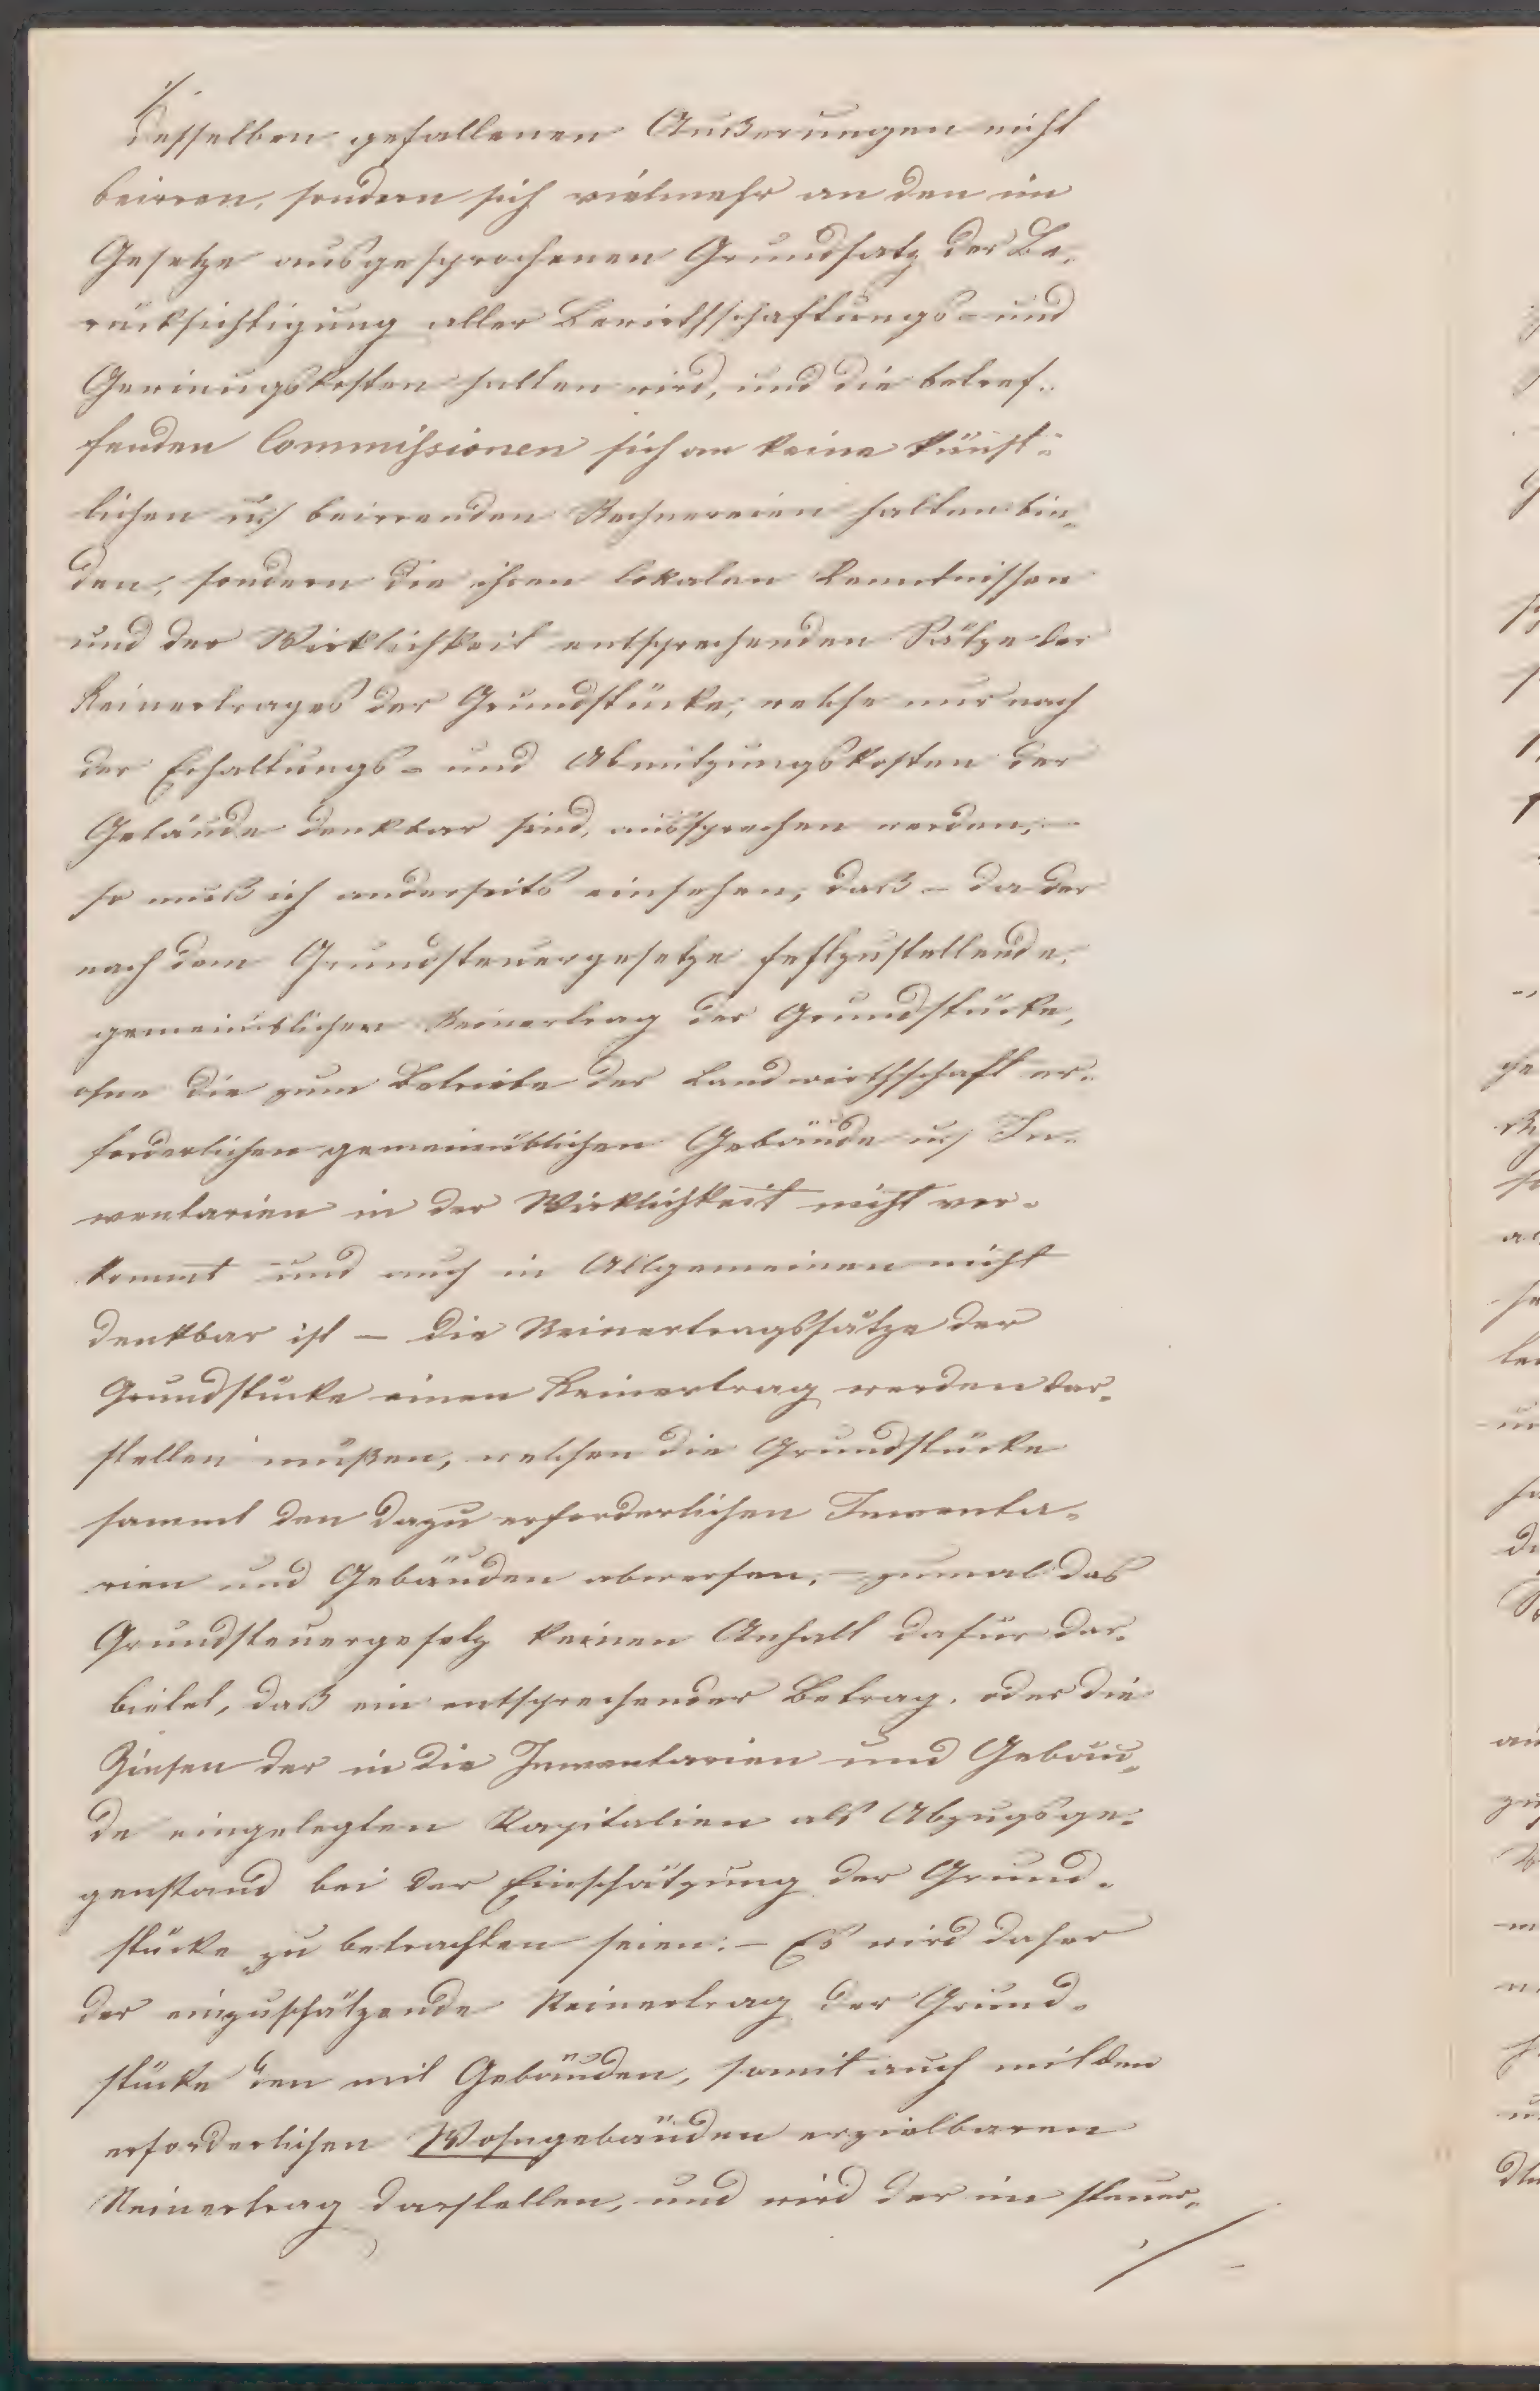 ./.
desselben gefallenen Äußerungen nicht
beirren, sondern sich vielmehr an den im
Gesetze ausgesprochenen Grundsatz der Be-
rücksichtigung aller Bewirthschaftungs- und
Gewinugskosten halten wird, und die betref-
fenden Commissionen sich an keine künst-
lichen u beirrenden Rechnereien halten bin-
den, sondern die ihren lokalen Kenntnissen
und der Wirklichkeit entsprechenden Sätze des
Reinertrages der Grundstücke, welche nur nach
der Erhaltungs- und Abnützungskosten der
Gebäude denkbar sind, aussprechen werden, –
so muß ich anderseits einsehen, daß – da der
nach dem Grundsteuergesetze festzustellende,
gemeinüblichen Reinertrag der Grundstücke,
ohne die zum Betriebe der Landwirthschaft er-
forderlichen gemeinüblichen Gebäude u In-
ventarien in der Wirklichkeit nicht vor-
kommt und auch in Allgemeinen nicht
denkbar ist – die Reinertragssätze der
Grundstücke einen Reinertrag werden dar-
stellen müßen, welchen die Grundstücke
sammt den dazu erforderlichen Inventa-
rien und Gebäuden abwerfen, – zumal das
Grundsteuergesetz keinen Anhalt dafür dar-
bietet, daß ein entsprechender Betrag, oder die
Zinsen der in die Inventarien und Gebäu-
de eingelegten Kapitalien als Abzugsge-
genstand bei der Einschätzung der Grund-
stücke zu betrachten seien. – Es wird daher
der einzuschätzende Reinertrag der Grund-
stücke den mit Gebäuden, somit auch mit den
erforderlichen Wohngebäuden erzielbaren
Reinertrag darstellen, und wird der im steuer-
./.